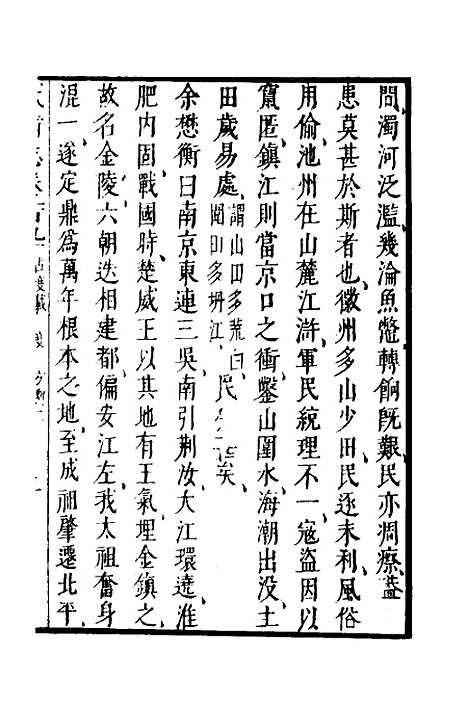 問濁河泛濫幾淪魚鱉轉餉既艱民亦凋瘵蓋
患莫甚於斯者也徽州多山少田民逐末利風俗
用偷池州在山麓江滸軍民統理不一寇盜因以
竄匿鎮江則當京口之衝鑿山圍水海潮出没土
田歲易處謂山田多荒白閭田多坍江民矣
余懋衡曰南京東連三吳南引荆汝大江環遶淮
肥内固戰國時楚威王以其地有王氣埋金鎮之
故名金陵六朝迭相建都偏安江左我太祖奮身
混一遂定鼎為萬年根本之地至成祖肇遷北平
武備志卷